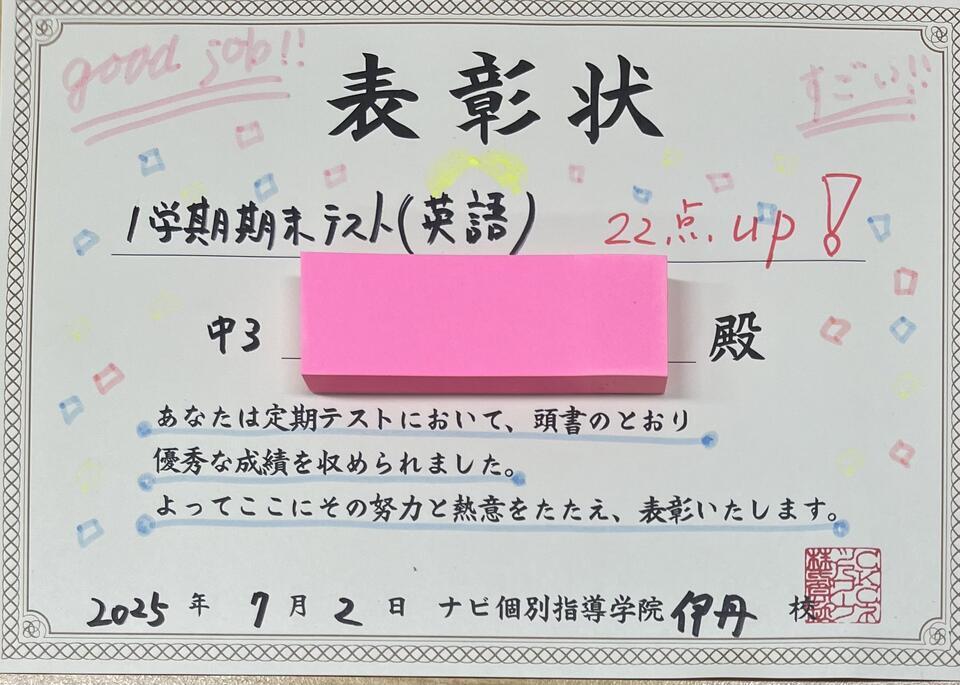 good job!!
すごい!!
表彰状
1学期期末テスト(英語) 22点up!
中3 殿
あなたは定期テストにおいて、頭書のとおり
優秀な成績を収められました。
よってここにその努力と熱意をたたえ、表彰いたします。
2025年7月2日 ナビ個別指導学院 伊丹 校